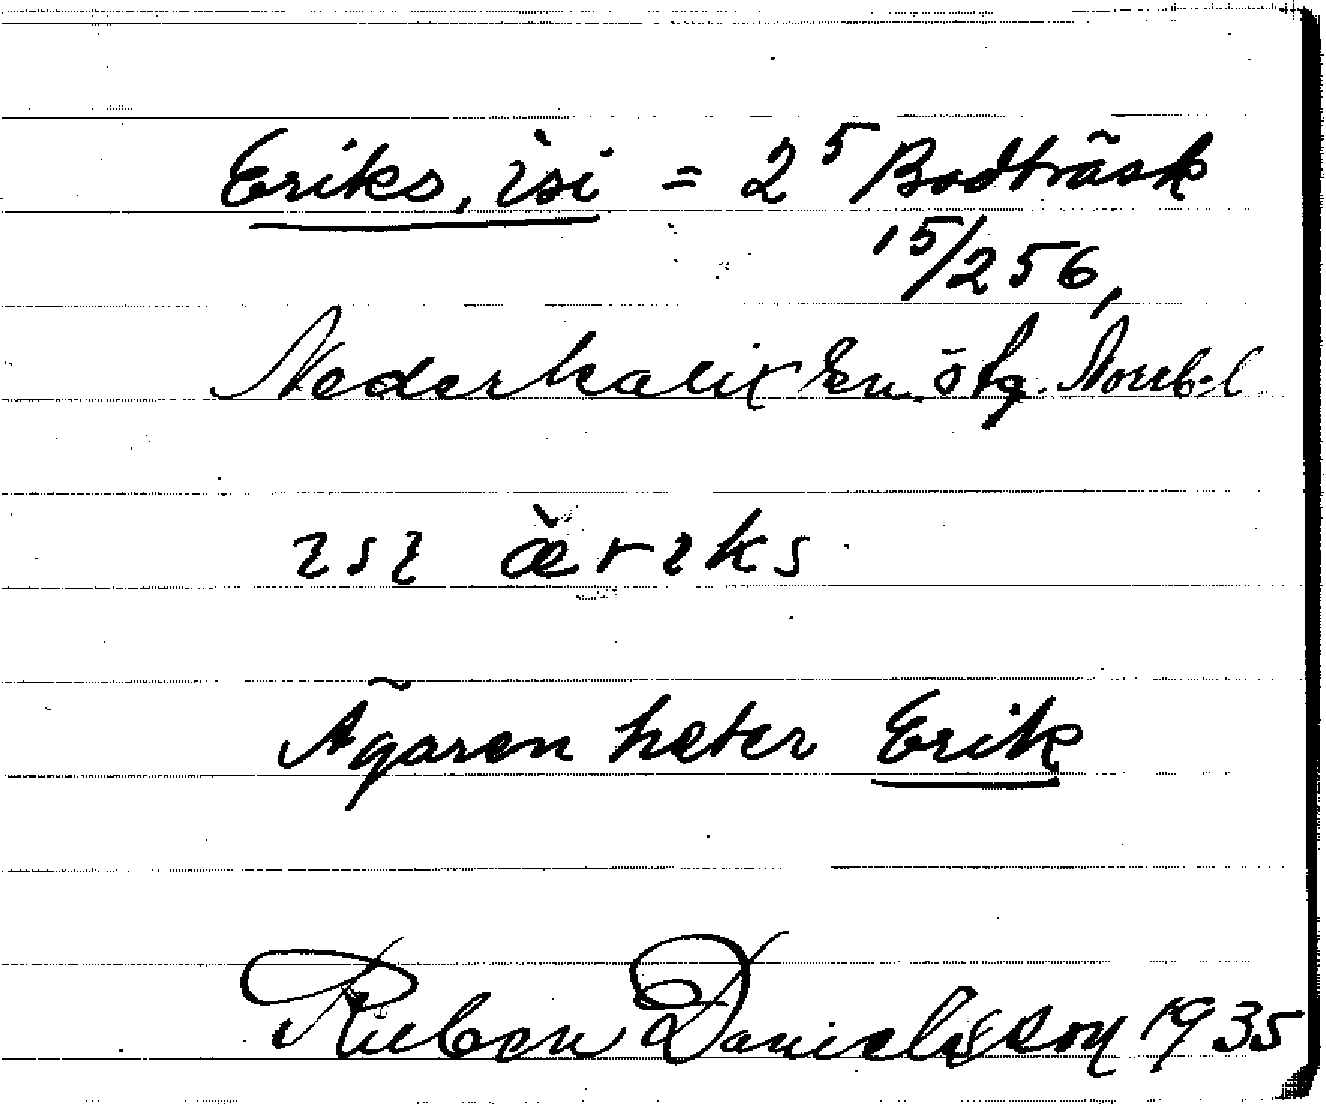 Eriks, ìsi = 2⁵ Bodträsk
15/256,
Nederkalix sn. ötg. Norrb. l.
ɪsɪ æ̀rɪks
Ägaren heter Erik
Ruben Danielsson 1935